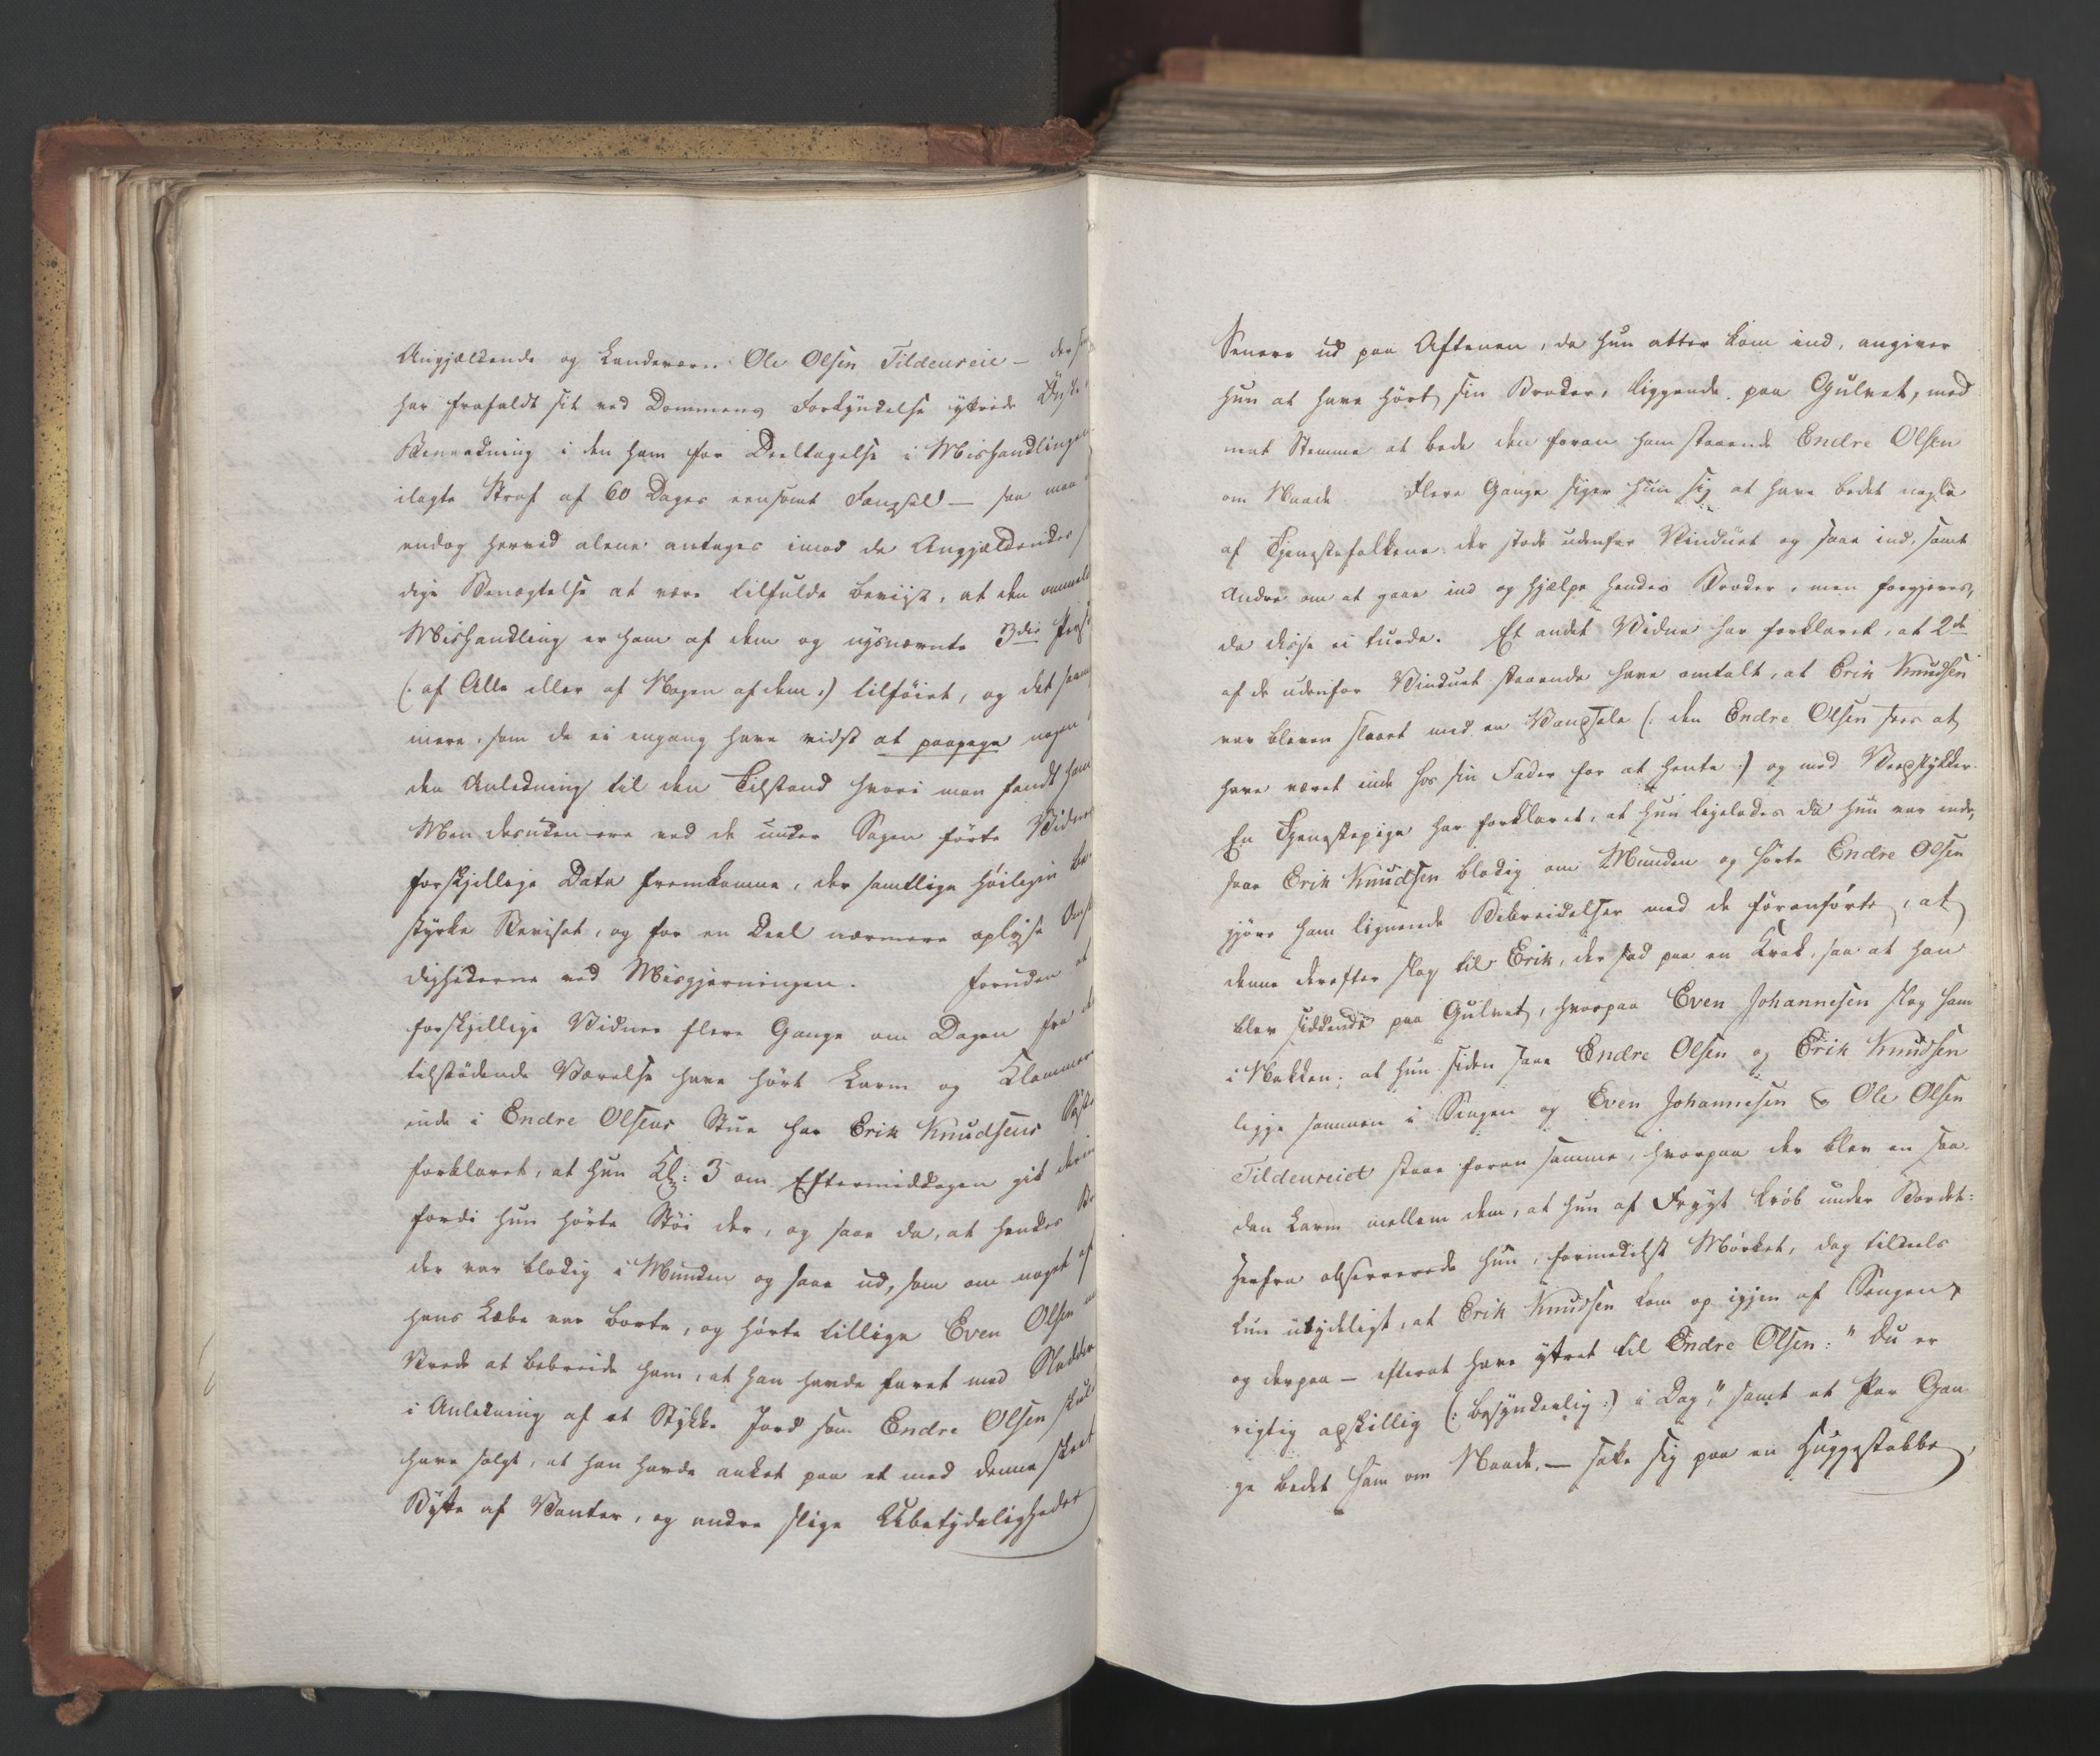 Angjældende og Landeværn: Ole Olsen Tildenseie –
har frafaldt sit ved Dommens Forkyndelse yttrede
Benævkning i den ham for Deeltagelse i Mishandlingen
ilagte Straf af 60 Dages eensomt Fængsel – saa maa
endog herved alene antages imod de Angjældendes
dige Benægtelse at være tilfulde beviist, at den
Mishandling er ham af dem og nysnævnte 3die
(: af Alle eller af Nogen af dem :) tilføiet, og det
mere, som de ei engang have vidst at paapege nogen
den Anledning til den Tilstand hvori man fandt ham
Men desuden ere ved de under Sagen førte Vidner
forskjellige Data fremkomne, der samtlige høiligen be-
styrke Beviset, og for en Deel nærmere oplyse
dighederne ved Misgjerningen. Foruden at
forskjellige Vidner flere Gange om Dagen fra
tilstødende Værelse have hørt Larm og Klammer
inde i Endre Olsens Stue har Erik Knudsens
forklaret, at hun Kl: 3 om Eftermiddagen gik
fordi hun hørte Støi der, og saae da, at hendes Bro
der var blodig i Munden og saae ud, som om noget af
hans Læbe var borte, og hørte tillige Even Olsen
Vrede at bebreide ham, at han havde faret med Sladder
i Anledning af et Stykke Jord som Endre Olsen skulde
have solgt, at han havde anket paa et med denne skeet
Bytte af Vanter, og andre slige Ubetydeligheder
Senere ud paa Aftenen, da hun atter kom ind, angiver
hun at have hørt sin Broder, liggende paa Gulvet, med
mat Stemme at bede den foran ham staaende Endre Olsen
om Naade. Flere Gange siger hun sig at have bedet nogle
af Tjenestefolkene der stode udenfor Vinduet og saae ind, samt
Andre om at gaae ind og hjælpe hendes Broder, men forgjeves,
da disse ei turde. Et andet Vidne har forklaret, at 2de
af de udenfor Vinduet staaende have omtalt, at Erik Knudsen
var bleven slaaet med en (: den Endre Olsen sees at
have været inde hos sin Fader for at hente :) og med Veedstykker.
En Tjenestepige har forklaret, at hun ligeledes da hun var inde,
saae Erik Knudsen blodig om Munden og hørte Endre Olsen
gjøre ham lignende Bebreidelser med de foranførte, at
denne derefter slog til Erik, der sad paa en Krak, saa at han
blev siddende paa Gulvet, hvorpaa Even Johannesen slog ham
i Nakken; at hun siden saae Endre Olsen og Erik Knudsen
ligge sammen i Sengen og Even Johannesen & Ole Olsen
Tildenseiet staae foran samme, hvorpaa der blev en saa-
dan Larm mellem dem, at hun af Frygt krøb under Bordet:
Herfra observerede hun, formedelst Mørket, dog tildeels
kun utydeligt, at Erik Knudsen kom op igjen af Sengen
og derpaa – efterat have yttret til Endre Olsen: "Du er
rigtig apskillig (: besynderlig :) i Dag," samt et Par Gan-
ge bedet ham om Naade, – satte sig paa en Huggestabbe,